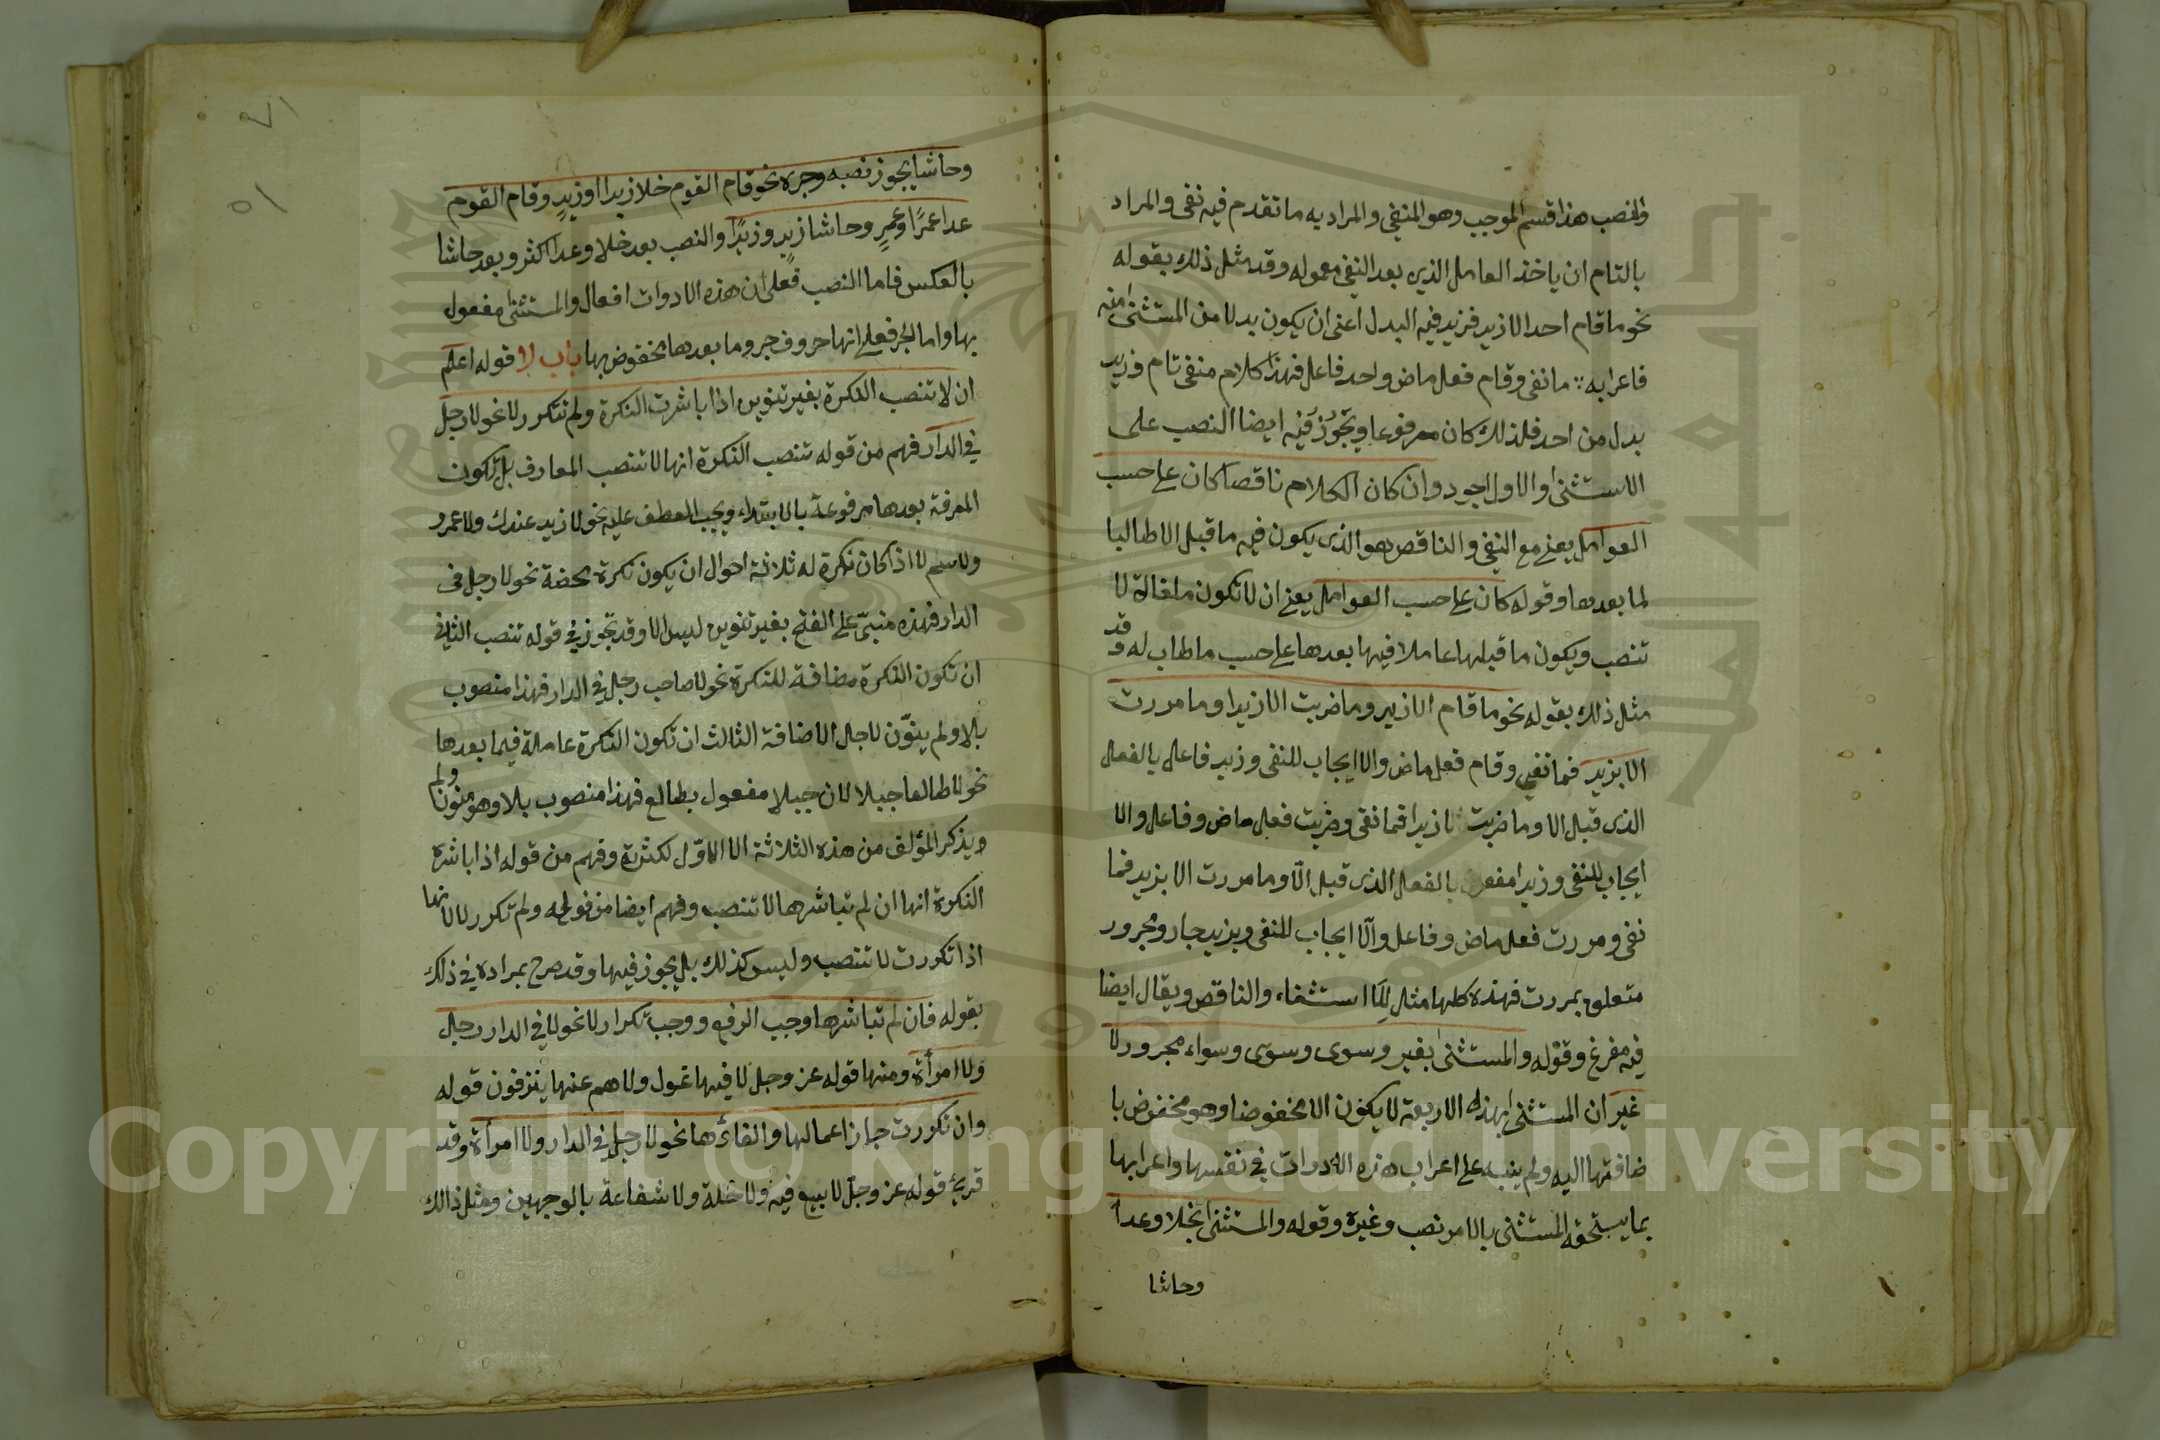 والنصب هذا قسم الموجب وهو المنفي والمراد به ما تقدم فيه نفى والمراد
بالتام ان ياخذ العامل الذى بعد النفي معموله وقد مثل ذلك بقوله
نحو ما قام احد الا زيد فزيد فيه البدل اعنى ان يكون بدلا من المستثنى منه
فاعرابه ما نفى وقام فعل ماض واحد فاعل فهذا كلام منفى تام وزيد
بدل من احد فلذلك كان مرفوعا ويجوز فيه ايضا النصب على
الاستثنى والاول اجود وان كان الكلام ناقصا كان على حسب
العوامل يعنى مع النفي والناقص هو الذى يكون فيه ما قبل الا طالبا
لما بعدها وقوله كان على حسب العوامل يعنى ان لا تكون ملغاة لا
تنصب ويكون ما قبلها عاملا فيها بعدها على حسب ما طاب له وقد
مثل ذلك بقوله نحو ما قام الا زيد وما ضربت الا زيدا وما مررت
الا بزيد فما نفي وقام فعل ماض والا ايجاب للنفى وزيد فاعل بالفعل
الذى قبل الا وما ضربت الا زيدا فما نفى وضربت فعل ماض وفاعل والا
ايجاب للنفى وزيدا مفعول بالفعل الذى قبل الا وما مررت الا بزيد فما
نفى ومررت فعل ماض وفاعل والا ايجاب للنفى وبزيد جار ومجرور
متعلق بمررت فهذه كلها مثل للاستثناء والناقص ويقال ايضا
فيه مفرغ وقوله والمستثنى بغير وسوى وسوى وسواء مجرور لا
غير ان المستثنى بهذه الاربعة لا يكون الا مخفوضا وهو مخفوض با
ضافتها اليه ولم ينبه على اعراب هذه الادوات في نفسها واعرابها
بما يستحقه المستثنى بالا من نصب وغيره وقوله والمستثنى بخلا وعدا
وحاشا
٧١
٥١
وحاشا يجوز نصبه وجره نحو قام القوم خلا زيدا او زيد وقام القوم
عدا عمرًا وعمرٍ وحاشا زيد وزيدًا والنصب بعد خلا وعدا اكثر وبعد حاشا
بالعكس فاما النصب فعلى ان هذه الادوات افعال والمستثنى مفعول
بها واما الجر فعلى انها حروف جر وما بعدها مخفوض بها باب لا قوله اعلم
ان لا تنصب النكرة بغير تنوين اذا باشرت النكرة ولم تتكرر لا نحو لا رجل
في الدار فهم من قوله تنصب النكرة انها لا تنصب المعارف بل تكون
المعرفة بعدها مرفوعة بالابتداء ويجب العطف عليه نحو لا زيد عندك ولا عمرو
ولاسم لا اذا كان نكرة له ثلاثة احوال ان يكون نكرة محضة نحو لا رجل فى
الدار فهذه مبنية على الفتح بغير تنوين ليس الا وقد تجوز في قوله تنصب الثانى
ان تكون النكرة مضافة للنكرة نحو لا صاحب رجل في الدار فهذا منصوب
بلا ولم ينوّن لاجل الاضافة الثالث ان تكون النكرة عاملة فيما بعدها
نحو لا طالعا جبلا لان جبلا مفعول بطالع فهذا منصوب بلا وهو منون ولم
ويذكر المؤلف من هذه الثلاثة الا الاوّل لكثرته وفهم من قوله اذا باشرة
النكرة انها ان لم تباشرها لا تنصب وفهم ايضا من قوله ولم تكرر لا انها
اذا تكررت لا تنصب وليس كذلك بل يجوز فيها وقد صرح بمراده في ذلك
بقوله فان لم تباشرها وجب الرفع ووجب تكرار لا نحو لا في الدار رجل
ولا امرأة ومنها قوله عز وجل لا فيها غول ولا هم عنها ينزفون قوله
وان تكررت جاز اعمالها والغاؤها نحو لا رجل في الدار ولا امرأة وقد
قرئ قوله عز وجل لا بيع فيه ولا خلة ولا شفاعة بالوجهين ومثل ذالك
Copyright © King Saud University